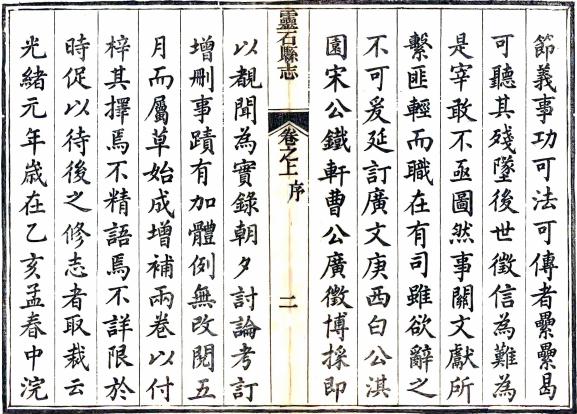 節義事功可法可傳者纍纍曷
可聽其殘墜後世徵信為難為
是宰敢不亟圖然事關文獻所
繫匪輕而職在有司雖欲辭之
不可爰延訂廣文庚西白公淇
園宋公鐵軒曹公廣徵博採即
靈石縣志
卷之上 序
二
以覩聞為實錄朝夕討論考訂
增刪事蹟有加體例無改閱五
月而屬草始成增補兩卷以付
梓其擇焉不精語焉不詳限於
時促以待後之修志者取裁云
光緒元年歲在乙亥孟春中浣